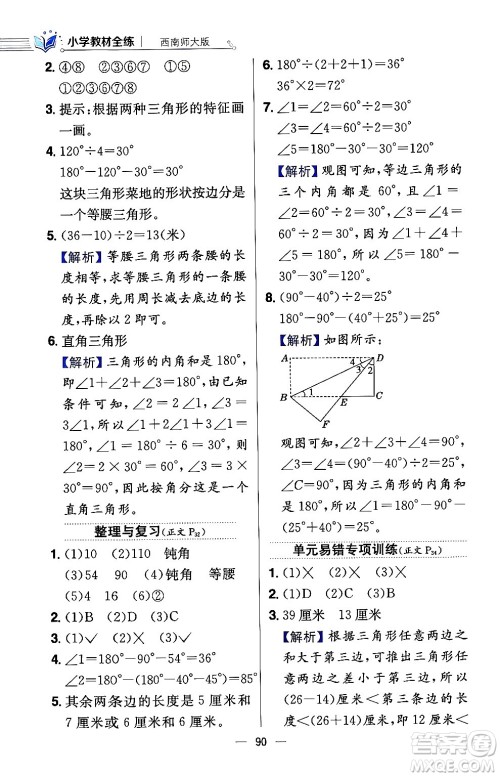 小学教材全练 西南师大版
2. ④⑧ ②③⑥⑦ ①⑤
①⑥⑧ ②③④⑤⑦
3. 提示：根据两种三角形的特征画
一画。
4. 120°÷4=30°
180°-120°-30°=30°
这块三角形菜地的形状按边分是
一个等腰三角形。
5. (36-10)÷2=13(米)
【解析】等腰三角形两条腰的长
度相等，求等腰三角形的一条腰
的长度，用周长减去底边的长
度，再除以 2 即可。
6. 直角三角形
【解析】三角形的内角和是 180°，
即∠1+∠2+∠3=180°，由已知
条件可知，∠2=2∠1，∠3=
3∠1，所以∠1+2∠1+3∠1=
180°，∠1=180°÷6=30°，
∠2=2×30°=60°，∠3=3×
30°=90°，所以这个三角形是一个
直角三角形。
整理与复习(正文 P32)
1. (1)10 (2)110 钝角
(3)54 90 (4)钝角 等腰
(5)15 (6)②④ ①⑥
2. (1)B (2)D (3)C
3. (1)✓ (2)✓ (3)✓
4. ∠1=180°-90°-40°=50°
∠2=180°-(180°-50°-45°)=85°
5. 其余两条边的长度是 5 厘米和
6 厘米、7 厘米和 4 厘米。
6. 180°÷(2+2+1)=36°
180°-36°-36°×2=72°
7. ∠1=∠2=60°÷2=30°
∠3=∠4=60°÷2=30°
∠5=180°-30°-30°=120°
【解析】观图可知，等边三角形的
三个内角都是 60°，∠1=∠2，
∠3=∠4，所以∠1=∠2=∠3=
∠4=60°÷2=30°，∠5=180°-
30°-30°=120°。
8. (90°-40°)÷2=25°
180°-90°-(40°+25°)=25°
【解析】如图所示：
A D
4 3 2
1
B E C
观图可知，∠2+∠3+∠4=90°，
∠3=∠4，∠2=40°，所以∠3=
∠4=(90°-40°)÷2=25°，
∠C=90°，所以∠1=180°-
90°-(40°+25°)=25°。
单元易错专项训练(正文 P34)
1. (1)✕ (2)✕
2. (1)C (2)A (3)D
3. 39 厘米 13 厘米
【解析】根据三角形任意两边之
和大于第三边，任意两边之差小
于第三边，可以推出三角形任意
两边之差<第三边<任意两边之
和，所以(26-14)厘米<第三边
<(26+14)厘米，即 12 厘米<
第三条边的长度<40 厘米，所以
90